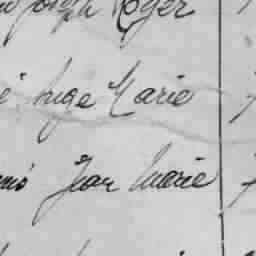 Joseph Roger
Ange Marie
Jean Marie